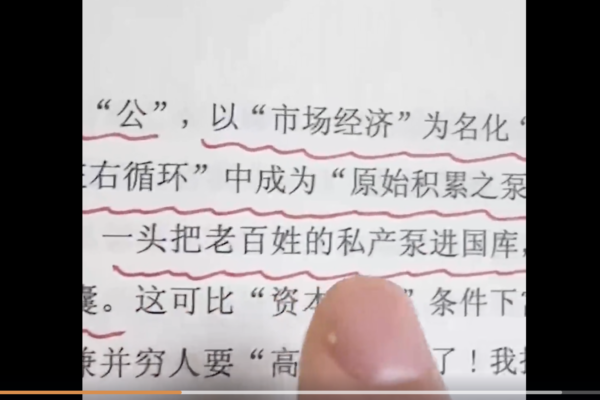 “公”，以“市场经济”为名化“
右循环”中成为“原始积累之泵
一头把老百姓的私产泵进国库，
囊。这可比“资本”条件下
兼并穷人要“高了！我